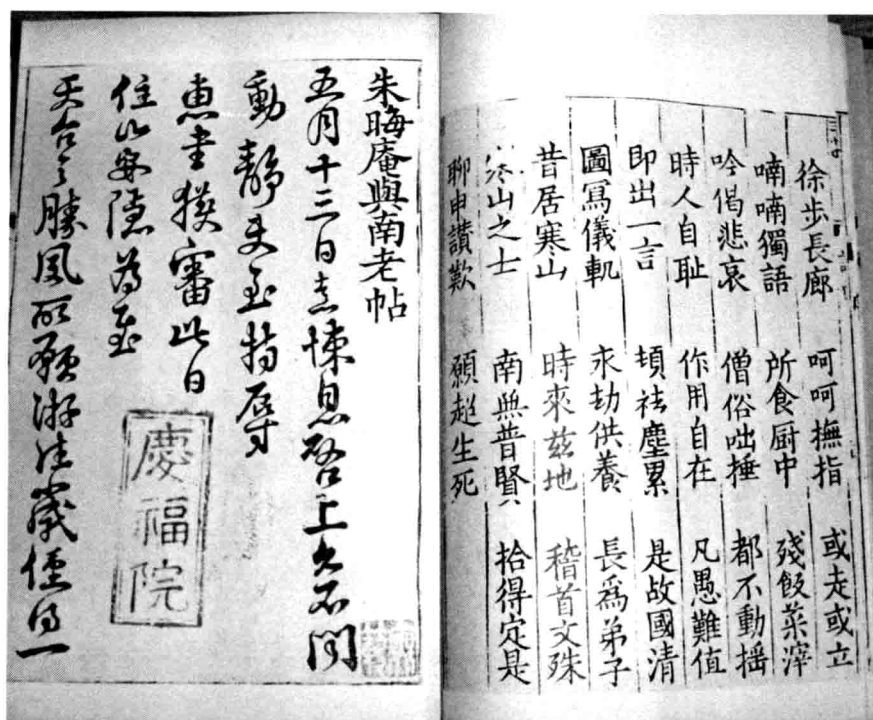 徐步長廊 呵呵撫指 或走或立
喃喃獨語 所食厨中 殘飯菜滓
吟偈悲哀 僧俗咄捶 都不動搖
時人自耻 作用自在 凡愚難值
即出一言 頓袪塵累 是故國清
圖冩儀軌 永劫供養 長爲弟子
昔居寒山 時來兹地 稽首文殊
寒山之士 南無普賢 拾得定是
聊申讚歎 願超生死
朱晦庵與南老帖
五月十三日熹悚息啓上久不聞
動靜使至特辱
惠書獲審比日
住山安隱為慰
天台之勝夙所願游往歲僅得一
慶福院